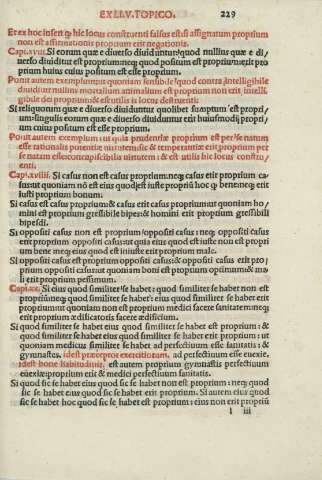 EX LI. V. TOPICO.
229
Et ex hoc inserit quod hic locus construenti falsus est: si assignatum proprium
non est affirmationis proprium erit negationis.
Cap. xviii. Si eorum quæ e diuerso diuiduntur: quod nullius quæ e di/
uerso diuiditur est proprium: neque quod positum est proprium: erit pro
prium huius cuius positum est esse proprium.
Ponit autem exemplum: ut quoniam sensibile: quod contra intelligibile
diuiditur nullius mortalium animalium est proprium non erit intelli
gibile dei proprium: & est utilis is locus destruenti.
Si reliquorum quæ e diuerso diuiduntur quolibet sumptum est propri/
um: singulis eorum quæ e diuerso diuiduntur erit huiusmodi propri/
um cuius positum est esse proprium.
Ponit autem exemplum: ut quia prudentiæ proprium est per se natum
esse rationalis potentiæ uirtutem: sic & temperantiæ erit proprium per
se natam esse concupiscibilis uirtutem: & est utilis hic locus constru/
enti.
Cap. xviiii. Si casus non est casus proprium: neque casus erit proprium ca/
sus: ut quoniam nō est eius quod est iuste propriū hoc quod bene: neque erit
iusti proprium bonum.
Si casus est casus proprium: & casus erit casus proprium: ut quoniam ho/
mini est proprium gressibile bipes: & homini erit proprium gressibili
bipedi.
Si oppositi casus non est proprium oppositi casus: neque oppositi casus
erit proprium oppositi casus: ut quia eius quod est iuste non est propri
um bene neque eius quod est iniuste erit proprium male.
Si oppositi casus est proprium oppositi casus: & oppositi casus erit pro/
prium oppositi casus: ut quoniam boni est proprium optimum: & ma/
li erit proprium pessimum.
Cap. xx. Si eius quod similiter se habet: quod similiter se habet non est
propriū: neque quod similiter se habet: eius quod similiter se habet erit
proprium: ut quoniam non est proprium medici facere sanitatem: neque
erit proprium ædificatoris facere ædificium.
Si quod similiter se habet eius quod similiter se habet est proprium: &
quod similiter se habet eius quod similiter se habet erit proprium: ut
quoniam medicus similiter se habet ad perfectiuum esse sanitatis: &
gymnastes. idest præceptor exercitiorum. ad perfectiuum esse euexiæ.
idest bonæ habitudinis. est autem proprium gymnastis perfectiuum
euexiæ: proprium erit & medici perfectiuum sanitatis.
Si quod sic se habet eius quod sic se habet non est proprium: neque quod
sic se habet eius quod sic se habet erit proprium. Si autem eius quod
sic se habet hoc quod sic se habet est proprium: eius non erit propriū
l iii